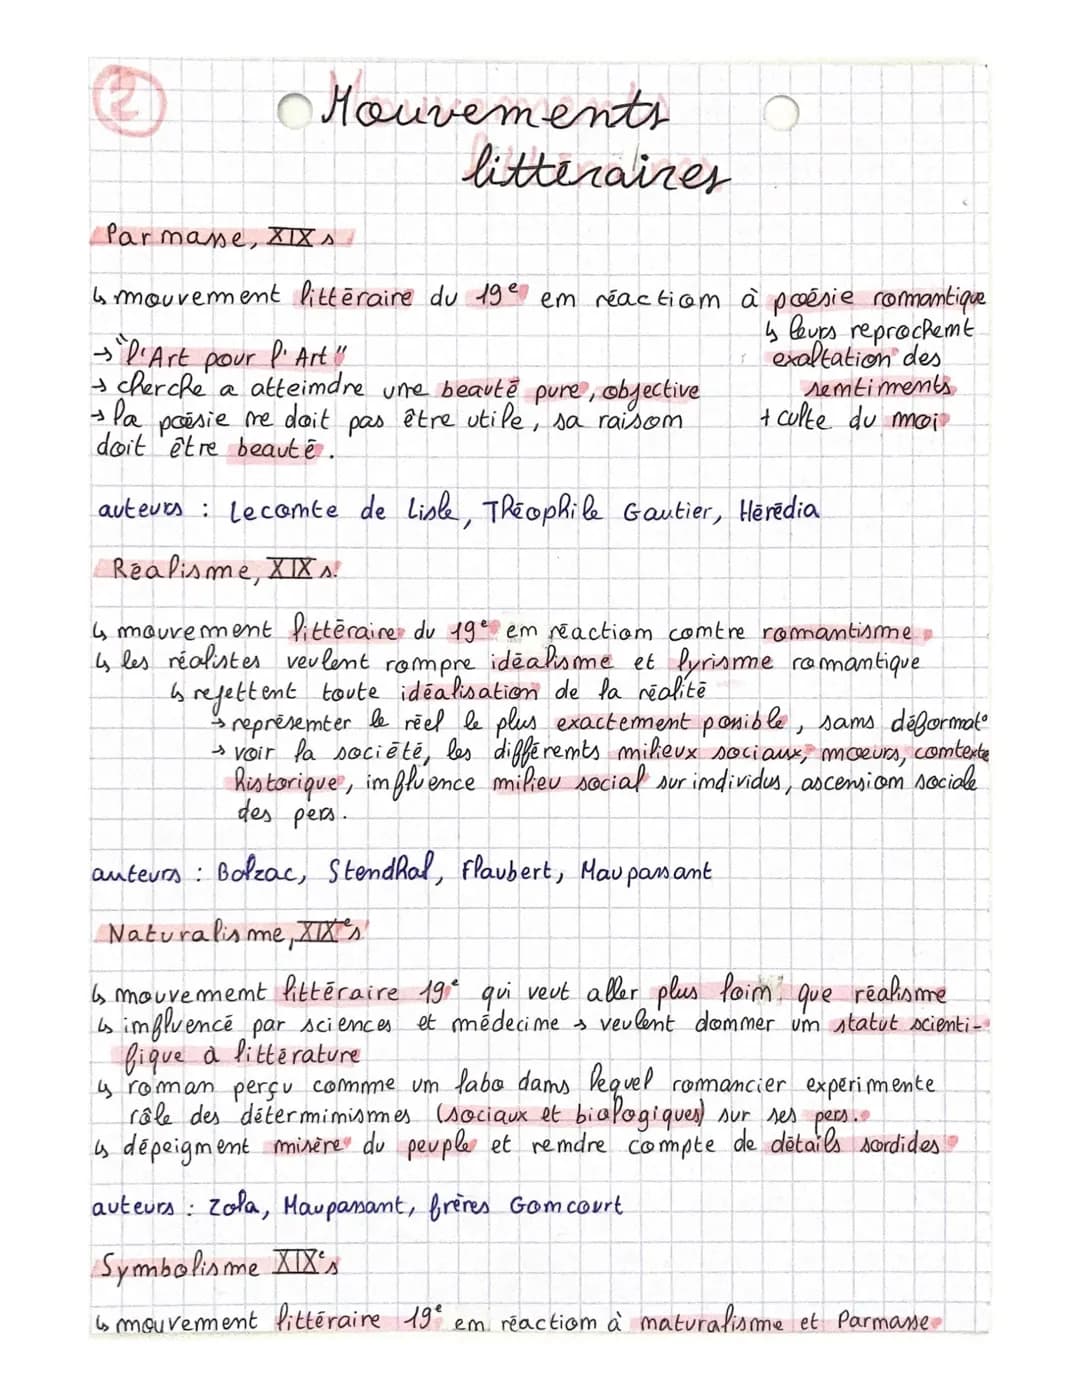 2
Mouvements
littéraires
Parnasse, XIXs
↳ mouvement littéraire du 19e en réaction à poésie romantique
↳ leurs reprochent
exaltation des
sentiments
+ culte du moi
→ "l'Art pour l'Art"
→ cherche a atteindre une beauté pure, objective
→ la poésie ne doit pas être utile, sa raison
doit être beauté.
auteurs : Lecomte de Lisle, Théophile Gautier, Hérédia
Réalisme, XIXs
↳ mouvement littéraire du 19e en réaction contre romantisme
↳ les réalistes veulent rompre idéalisme et lyrisme romantique
↳ rejettent toute idéalisation de la réalité
→ représenter le réel le plus exactement possible, sans déformat°
→ voir la société, les différents milieux sociaux, mœurs, contexte
historique, influence milieu social sur individus, ascension sociale
des pers.
auteurs : Balzac, Stendhal, Flaubert, Maupassant
Naturalisme, XIXes
↳ mouvement littéraire 19e qui veut aller plus loin que réalisme
↳ influencé par sciences et médecine → veulent donner un statut scienti-
fique à littérature
↳ roman perçu comme un labo dans lequel romancier expérimente
rôle des déterminismes (sociaux et biologiques) sur ses pers.
↳ dépeignent misère du peuple et rendre compte de détails sordides
auteurs : Zola, Maupassant, frères Goncourt
Symbolisme XIXes
↳ mouvement littéraire 19e en réaction à naturalisme et Parnasse